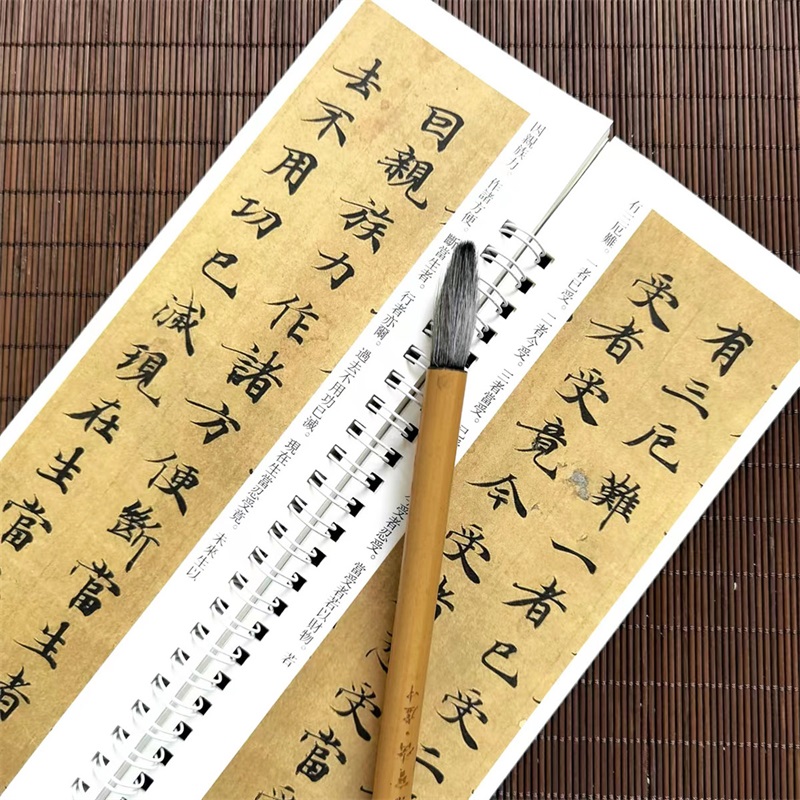 有三厄難。一者已受。二者今受。三者當受。已受
今受者忍受。當受者若以財物。若
有三厄難一者已受二
受者受竟今受者忍受當
因親族力。作諸方便。斷當生者。行者亦爾。過去不用功已滅。現在生當忍受竟。未來生以
因親族力作諸方便斷當生者
去不用功已滅現在生當